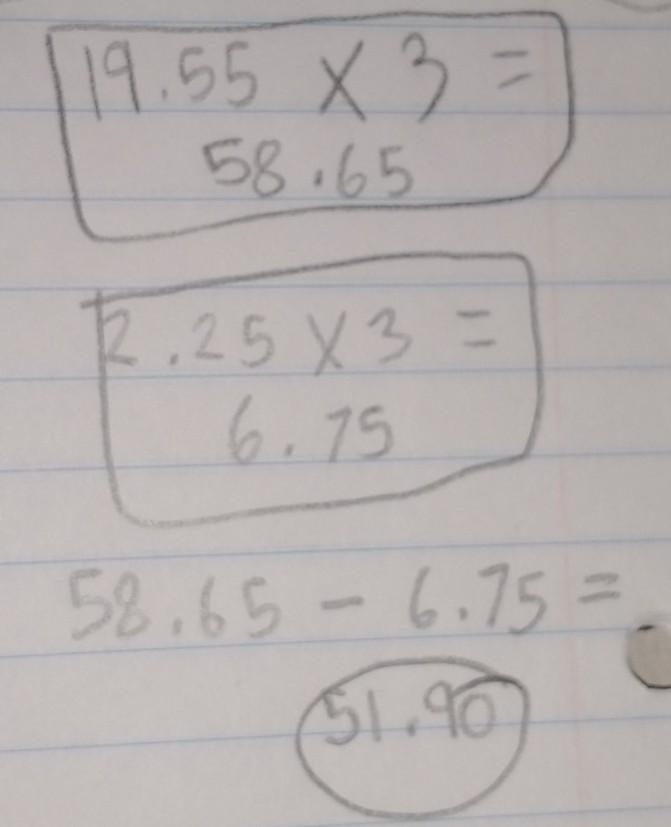 19.55 X 3 =
58.65
2.25 X 3 =
6.75
58.65 - 6.75 =
51.90